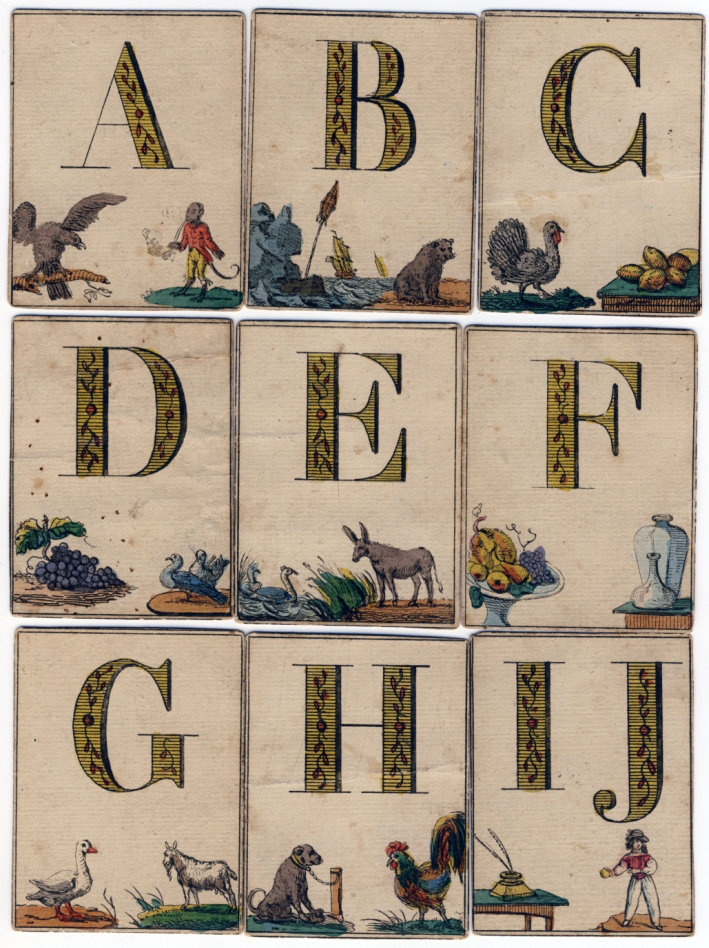 A B C
D E F
G H I J